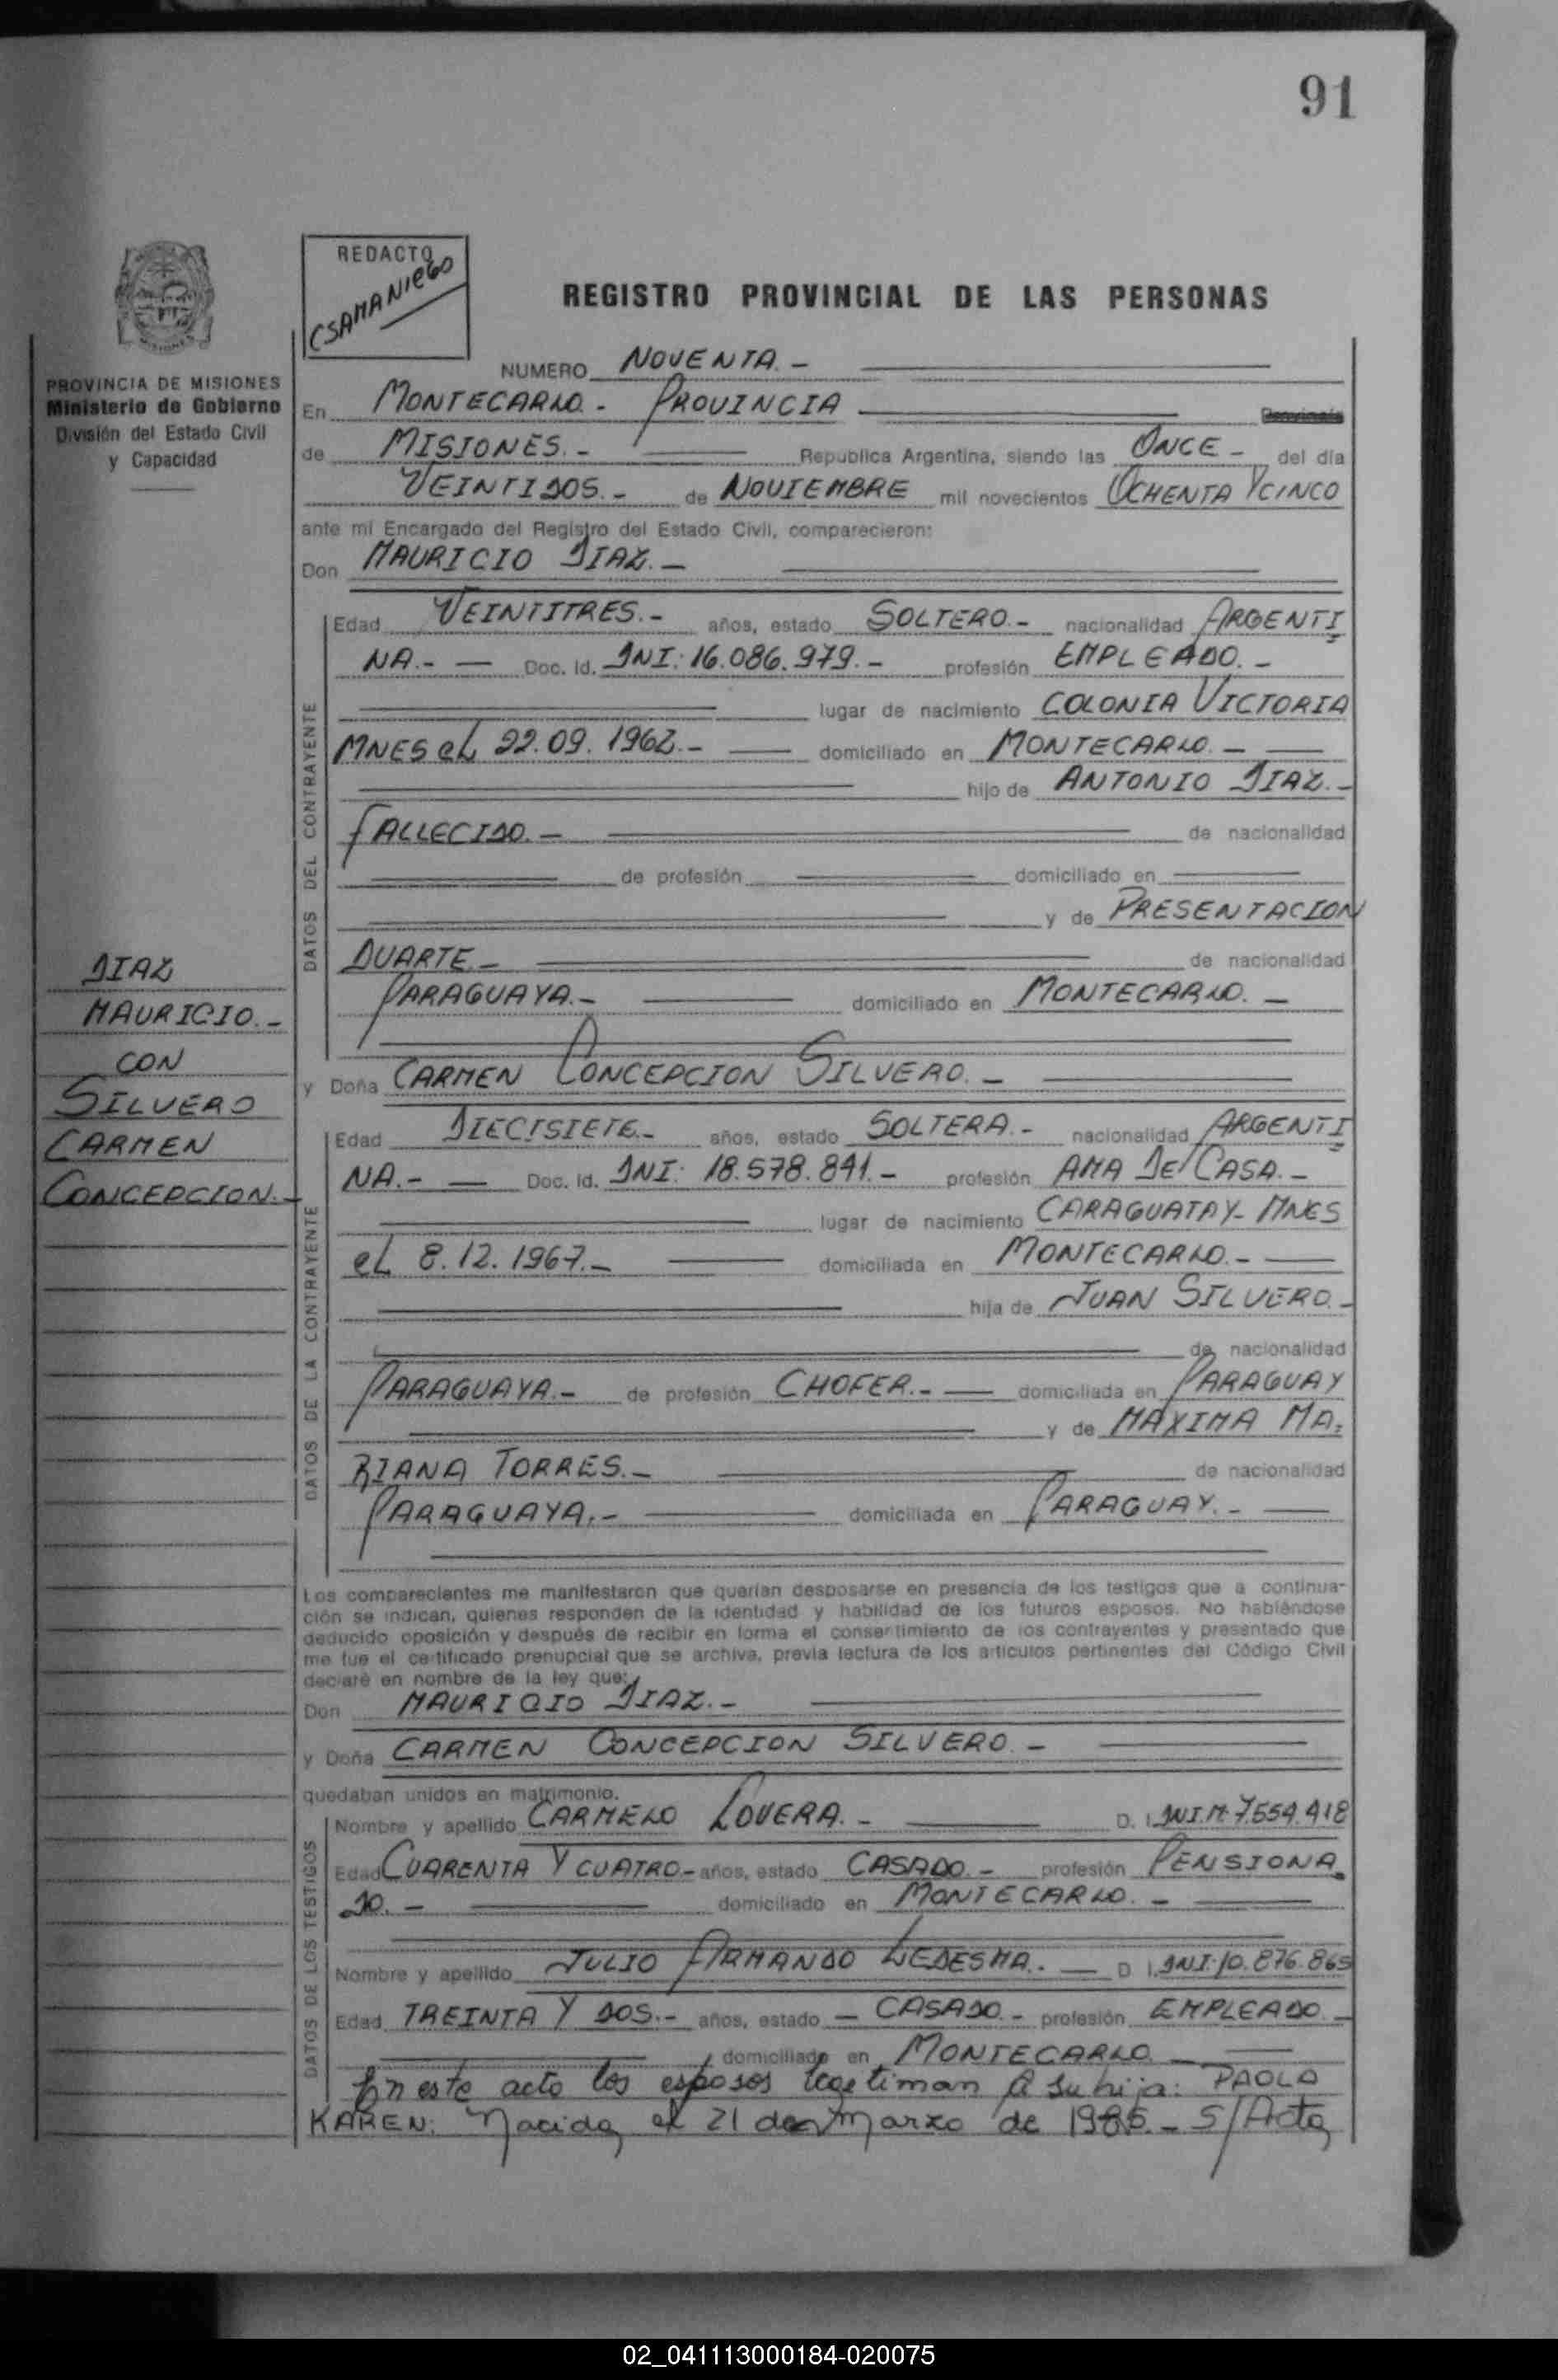 91
REDACTO
CSAMANIEGO
REGISTRO PROVINCIAL DE LAS PERSONAS
PROVINCIA DE MISIONES
Ministerio de Gobierno
División del Estado Civil
y Capacidad
NUMERO NOVENTA.-
En MONTECARLO.- PROVINCIA Provincia
de MISIONES.- Republica Argentina, siendo las ONCE- del día
VEINTIDOS.- de NOVIEMBRE mil novecientos OCHENTA Y CINCO
ante mi Encargado del Registro del Estado Civil, comparecieron:
Don MAURICIO DIAZ.-
DATOS DEL CONTRAYENTE
Edad VEINTITRES.- años, estado SOLTERO.- nacionalidad ARGENTI
NA.- Doc. Id. DNI: 16.086.979.- profesión EMPLEADO.-
lugar de nacimiento COLONIA VICTORIA
MNES el 22.09.1962.- domiciliado en MONTECARLO.-
hijo de ANTONIO DIAZ.-
FALLECIDO.- de nacionalidad
de profesión domiciliado en
y de PRESENTACION
DUARTE.- de nacionalidad
PARAGUAYA.- domiciliado en MONTECARLO.-
DIAZ
MAURICIO.-
CON
SILVERO
CARMEN
CONCEPCION.-
y Doña CARMEN CONCEPCION SILVERO.-
DATOS DE LA CONTRAYENTE
Edad DIECISIETE.- años, estado SOLTERA.- nacionalidad ARGENTI
NA.- Doc. Id. DNI: 18.578.841.- profesión AMA DE CASA.-
lugar de nacimiento CARAGUATAY- MNES
el 8.12.1967.- domiciliada en MONTECARLO.-
hija de JUAN SILVERO.-
de nacionalidad
PARAGUAYA.- de profesión CHOFER.- domiciliada en PARAGUAY
y de MAXIMA MA=
RIANA TORRES.- de nacionalidad
PARAGUAYA.- domiciliada en PARAGUAY.-
Los comparecientes me manifestaron que querían desposarse en presencia de los testigos que a continua-
ción se indican, quienes responden de la identidad y habilidad de los futuros esposos. No habiéndose
deducido oposición y después de recibir en forma el consentimiento de los contrayentes y presentado que
me fue el certificado prenupcial que se archiva, previa lectura de los artículos pertinentes del Código Civil
declaré en nombre de la ley que:
Don MAURICIO DIAZ.-
y Doña CARMEN CONCEPCION SILVERO.-
quedaban unidos en matrimonio.
DATOS DE LOS TESTIGOS
Nombre y apellido CARMELO LOVERA.- D. I. DNI.M.7.554.418
Edad CUARENTA Y CUATRO- años, estado CASADO.- profesión PENSIONA
DO.- domiciliado en MONTECARLO.-
Nombre y apellido JULIO ARMANDO LEDESMA.- D I. DNI.10.876.865
Edad TREINTA Y DOS.- años, estado - CASADO.- profesión EMPLEADO.-
domiciliado en MONTECARLO.-
En este acto los esposos legetiman a su hija: PAOLA
KAREN: Nacida el 21 de marzo de 1985.- S/Acta
02_041113000184-020075